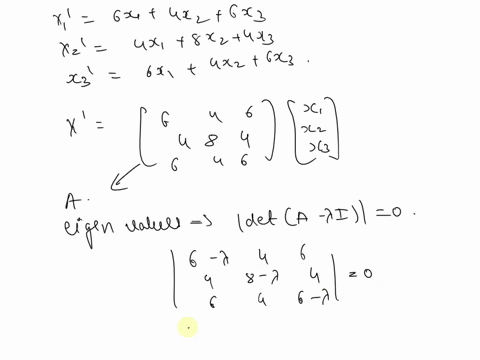 x₁' = 6x₁ + 4x₂ + 6x₃
x₂' = 4x₁ + 8x₂ + 4x₃
x₃' = 6x₁ + 4x₂ + 6x₃ .
X' = [ 6 4 6 ] [ x₁ ]
4 8 4 x₂
6 4 6 x₃
A.
eigen values => |det(A - λI)| = 0 .
| 6-λ 4 6 |
4 8-λ 4 = 0
6 4 6-λ